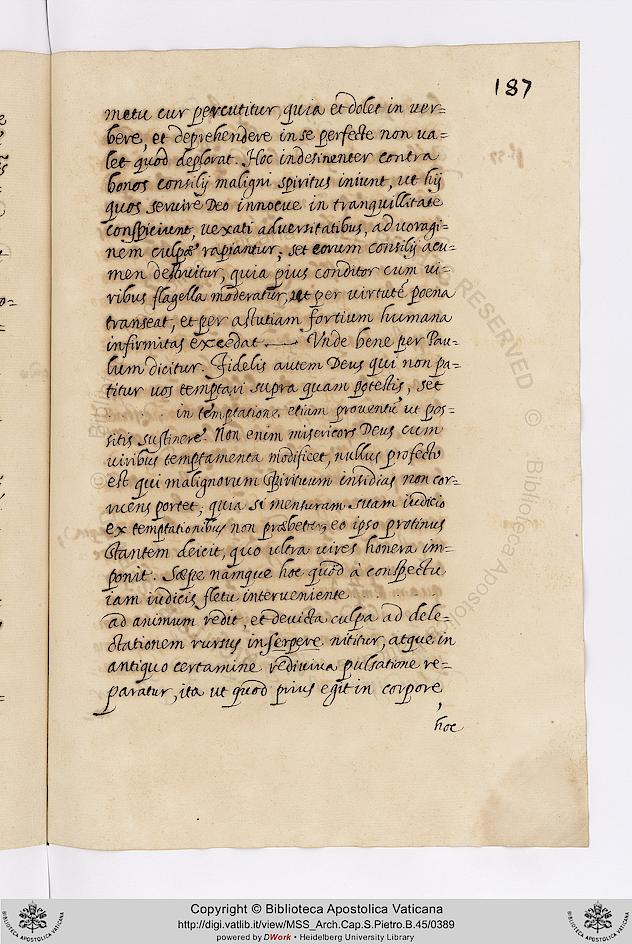 187
metu cur percutitur, quia et dolet in ver=
bere, et deprehendere in se perfecte non va=
let quod deplorat. Hoc indesinenter contra
bonos consilij maligni spiritus iniunt, ut hij
quos servire Deo innocue in tranquillitate
conspiciunt, vexati adversitatibus, ad voragi=
nem culpæ rapiantur, set eorum consilij acu=
men destruitur, quia pius conditor cum vi=
ribus flagella moderatur, ut per virtutē poena
transeat, et per astutiam fortium humana
infirmitas excedat —— Unde bene per Pau=
lum dicitur. Fidelis autem Deus qui non pa=
titur vos temptari supra quam potestis, set
in temptatione etiam proventū ut pos=
sitis sustinere. Non enim misericors Deus cum
viribus temptamenta modificet, nullus profecto
est qui malignorum spirituum insidias non cor=
ruens portet; quia si mensuram suam iudicio
ex temptationibus non præbetur, eo ipso protinus
stantem deicit, quo ultra vires honera im=
ponit. Sæpe namque hoc quod à conspectu
iam iudicis fletu interveniente
ad animum redit, et devicta culpa ad dele=
ctationem rursus inserpere nititur, atque in
antiquo certamine rediviva pulsatione re=
paratur, ita ut quod prius egit in corpore
hoc
RESERVED © Biblioteca Apostolica
Copyright © Biblioteca Apostolica Vaticana
http://digi.vatlib.it/view/MSS_Arch.Cap.S.Pietro.B.45/0389
powered by DWork • Heidelberg University Library